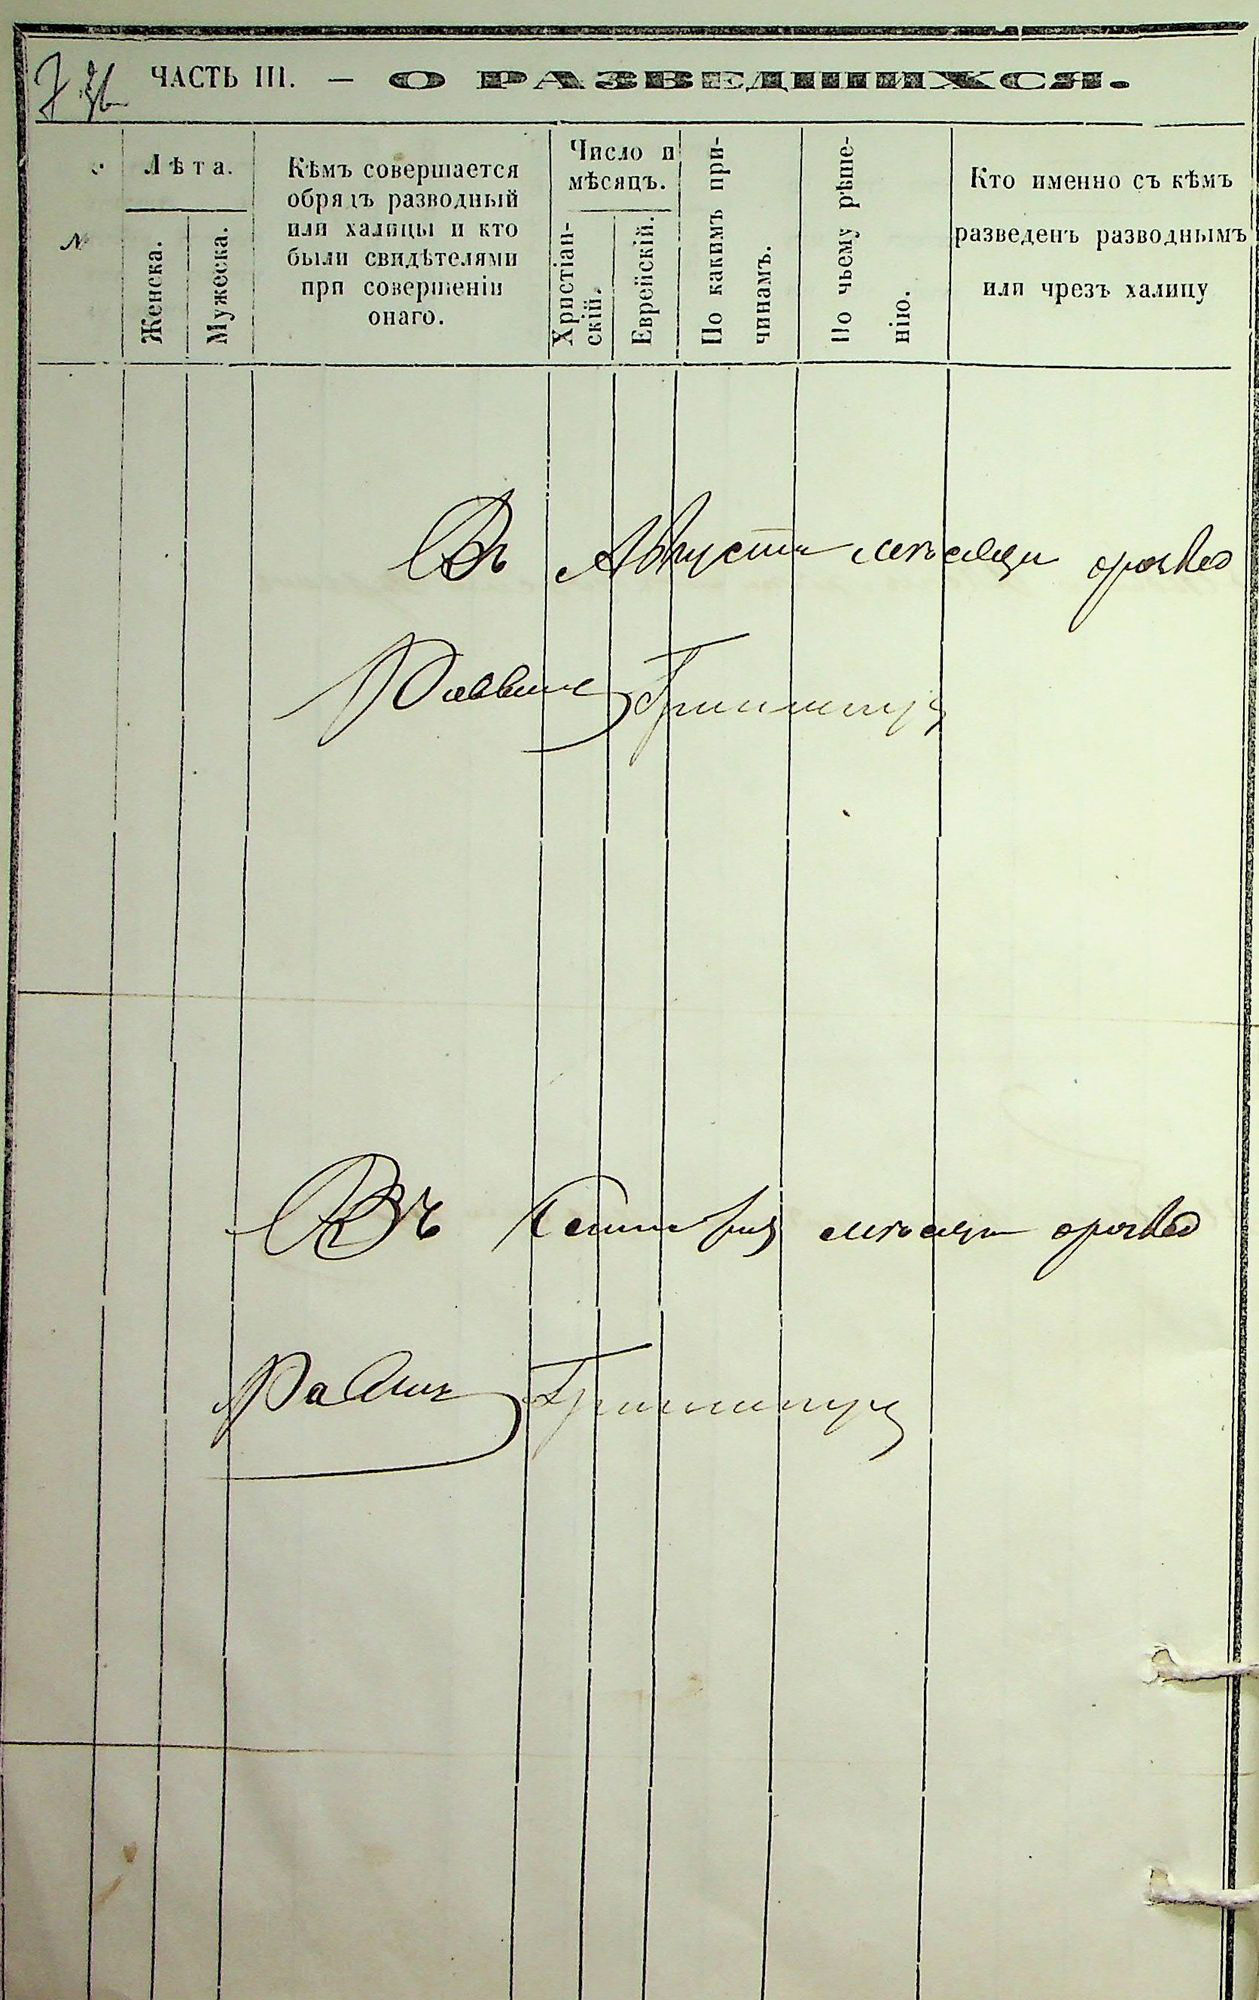 ЧАСТЬ III. — О РАЗВЕДШИХСЯ.
№
Лѣта.
Женска.
Мужеска.
Кѣмъ совершается
обрядъ разводный
или халицы и кто
были свидѣтелями
при совершеніи
онаго.
Число и
мѣсяцъ.
Христіан-
скій.
Еврейскій.
По какимъ при-
чинамъ.
По чьему рѣше-
нію.
Кто именно съ кѣмъ
разведенъ разводнымъ
или чрезъ халицу
Въ Августѣ мѣсяцѣ
Раввинъ
Въ Сентябрѣ мѣсяцѣ
Равинъ